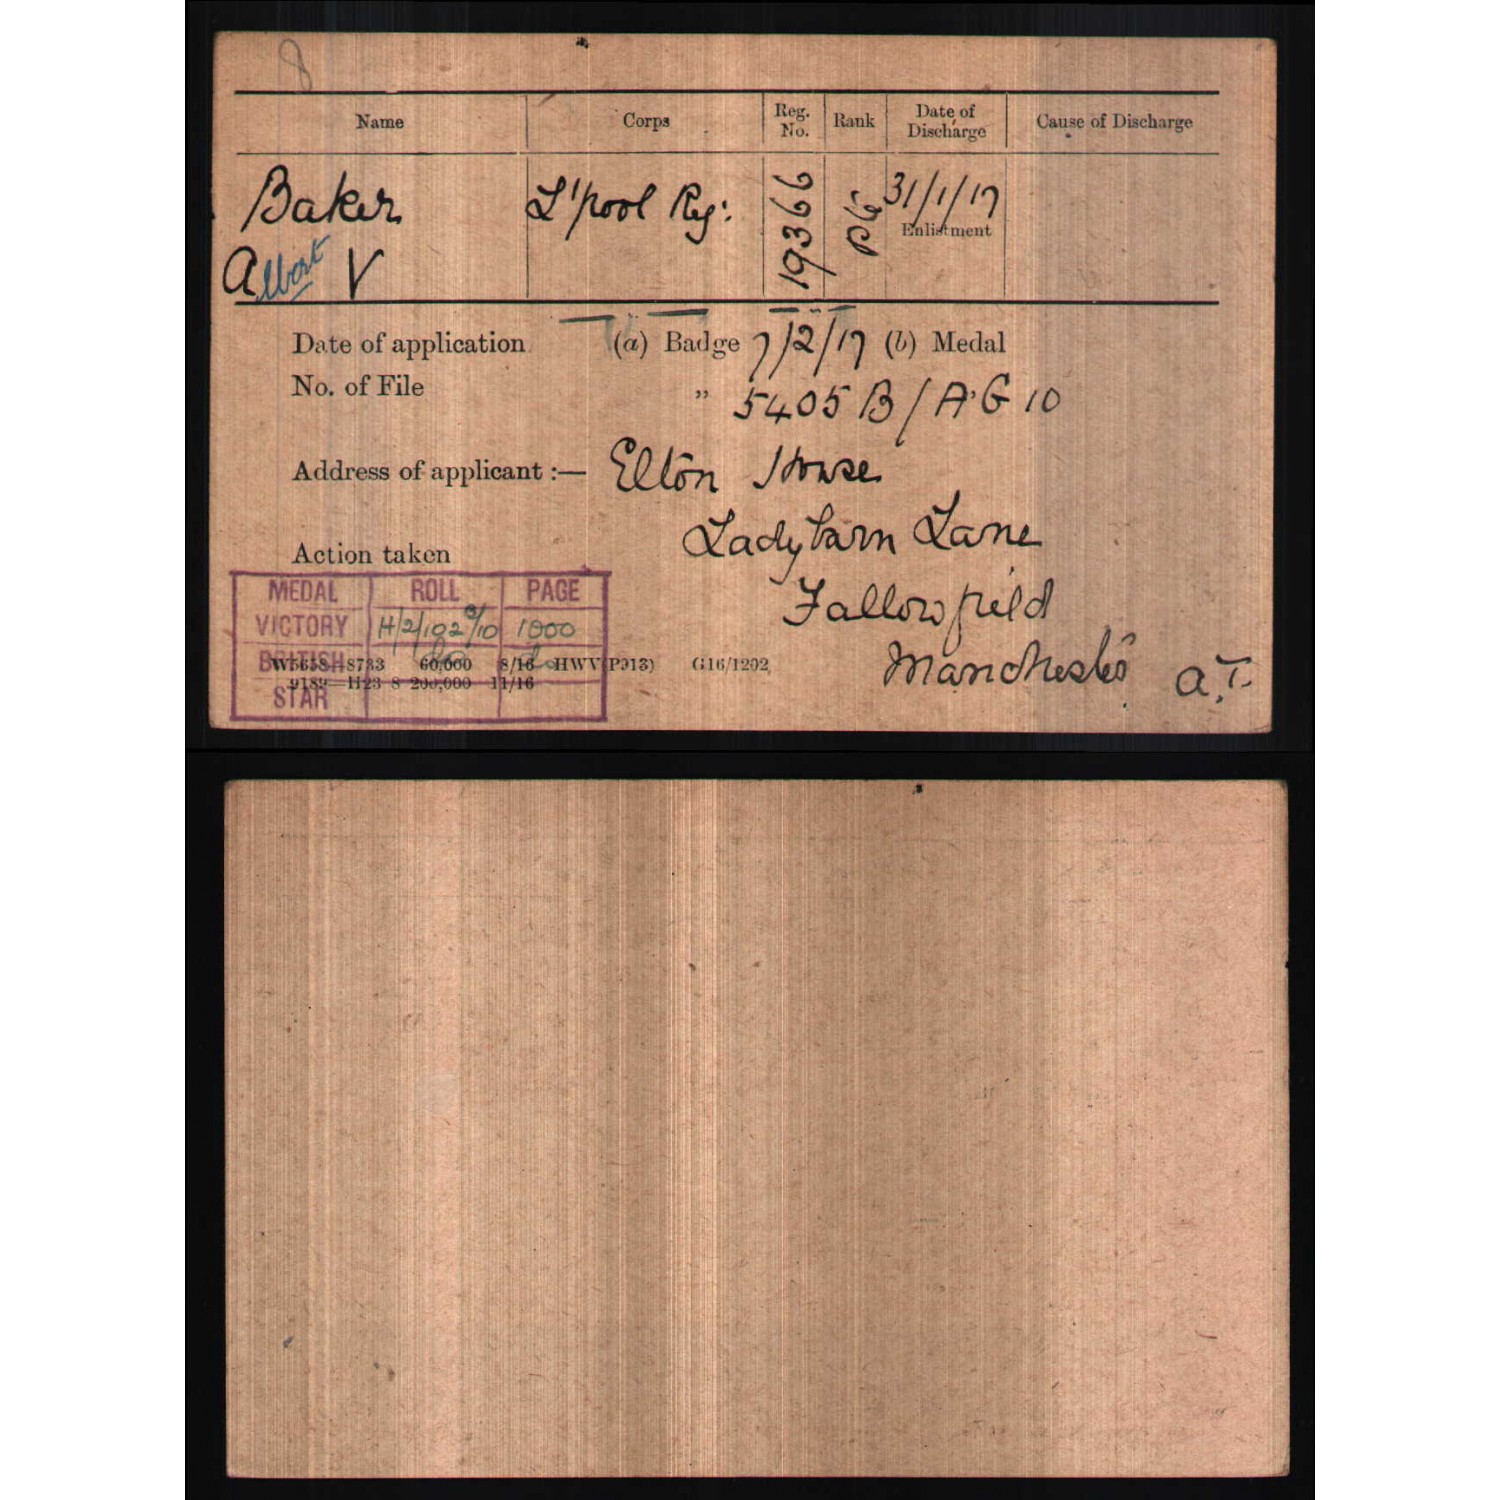 8
Name Corps Reg. No. Rank Date of Discharge Cause of Discharge
Baker L'pool Reg: 19366 Pte 31/1/17
Enlistment
Albert V
Date of application (a) Badge 7/2/17 (b) Medal
No. of File " 5405 B/A.G 10
Address of applicant :— Elton House
Ladybarn Lane
Action taken
MEDAL ROLL PAGE
Fallowfield
VICTORY H/2/102 B/10 1000
BRITISH do do
W5658—8733 60,000 8/16 HWV(P913) G16/1202
Manchester a.T.
9189—H23 8 200,000 11/16
STAR